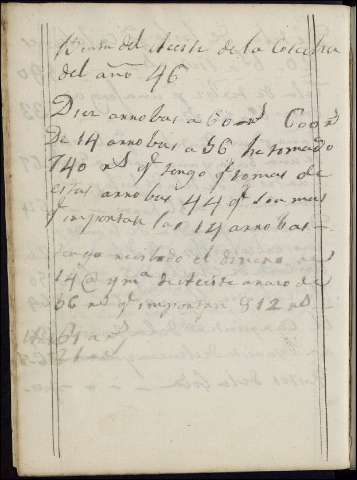 Benta del Aceite de la Cosecha
del año 46
Diez arrobas a 60 rs 600 rs
De 14 arrobas a 56 he tomado
740 rs qe tengo qe tomar de
estas arrobas 44 qe son mas
qe importan las 14 arrobas
Tengo recibido el dinero de
14 @ y ma de Aceite a razo de
66 rs qe importan 912 rs